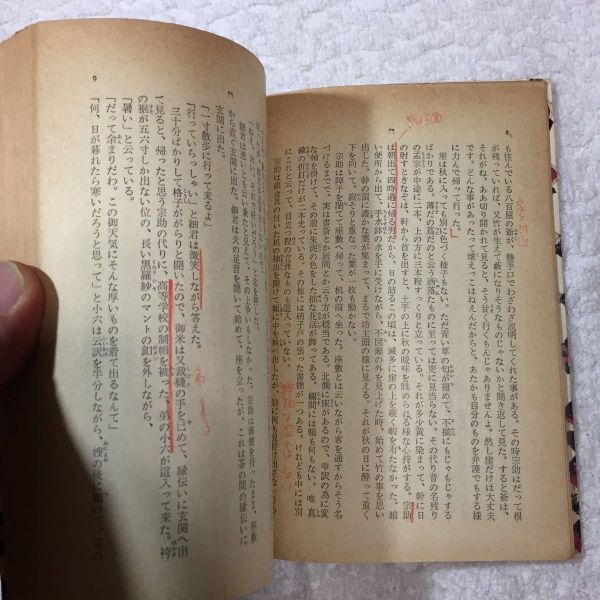 8
も住んでいる八百屋の爺が、勝手口でわざわざ説明してくれた事がある。その時宗助はだって根
が残っていれば、又竹が生えて藪になりそうなものじゃないかと聞き返して見た。すると爺は、
それがね、ああ切り開かれて見ると、そう甘く行くもんじゃありませんよ。然し崖だけは大丈夫
です。どんな事があったって壊えっこはねえんだからと、あたかも自分のものを弁護でもする様
に力んで帰って行った。
崖は秋に入っても別に色づく様子もない。ただ青い草の匂が褪めて、不揃にもじゃもじゃする
ばかりである。薄だの蔦だのと云う洒落たものに至っては更に見当らない。その代り昔の名残り
の孟宗が中途に二本、上の方に三本程すっくりと立っている。それが多少黄に染まって、幹に日
の射すときなぞは、軒から首を出すと、土手の上に秋の暖味を眺められる様な心持がする。宗助
は朝出て四時過に帰る男だから、日の詰まるこの頃は、滅多に崖の上を覗く暇を有たなかった。暗
い便所から出て、手水鉢の水を手に受けながら、不図廂の外を見上げた時、始めて竹の事を思い
出した。幹の頂に濃かな葉が集まって、まるで坊主頭の様に見える。それが秋の日に酔って重く
下を向いて、寂そりと重なった葉が一枚も動かない。
宗助は障子を閉てて座敷へ帰って、机の前へ坐った。座敷とは云いながら客を通すからそう名
づけるまでで、実は書斎とか居間とか云う方が穏当である。北側に床があるので、申訳の為に変
な軸を掛けて、その前に朱泥の色をした拙な花活が飾ってある。欄間には額も何もない。唯真
鍮の折釘だけが二本光っている。その他には硝子戸の張った書棚が一つある。けれども中には別
にこれと云って目立つ程の立派なものも這入っていない。
門
門
9
から直ぐ玄関に出た。細君は夫の足音を聞いて始めて、座を立ったが、これは茶の間の縁伝いに
玄関に出た。
「一寸散歩に行って来るよ」
「行っていらっしゃい」と細君は微笑しながら答えた。
三十分ばかりして格子ががらりと開いたので、御米は又裁縫の手を已めて、縁伝いに玄関へ出
て見ると、帰ったと思う宗助の代りに、高等学校の制帽を被った、弟の小六が這入って来た。袴
の裾が五六寸しか出ない位の、長い黒羅紗のマントの釦を外しながら、
「暑い」と云っている。
「だって余まりだわ。この御天気にそんな厚いものを着て出るなんて」
「何、日が暮れたら寒いだろうと思って」と小六は云訳を半分しながら、嫂の後に跟いて、茶の